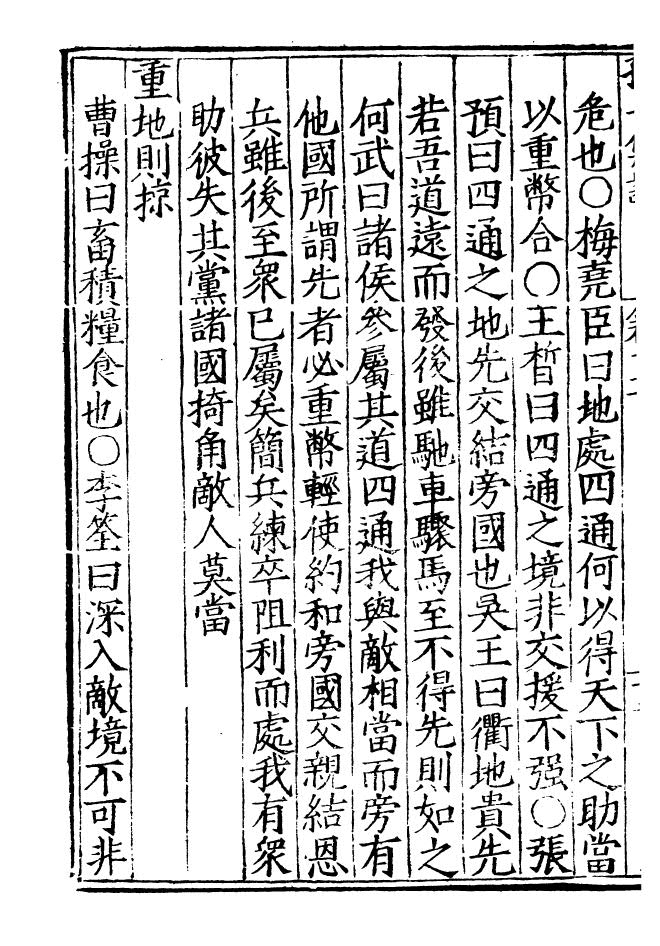 危也〇梅堯臣曰地處四通何以得天下之助當
以重幣合〇王晳曰四通之境非交援不强〇張
預曰四通之地先交結旁國也吳王曰衢地貴先
若吾道遠而發後雖馳車驟馬至不得先則如之
何武曰諸侯參屬其道四通我與敵相當而旁有
他國所謂先者必重幣輕使約和旁國交親結恩
兵雖後至衆已屬矣簡兵練卒阻利而處我有衆
助彼失其黨諸國掎角敵人莫當
重地則掠
曹操曰畜積糧食也〇李筌曰深入敵境不可非